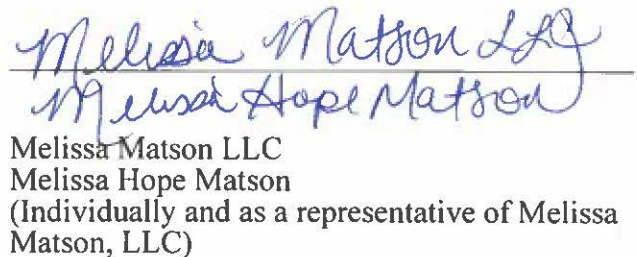 Melissa Matson LLC
Melissa Hope Matson
Melissa Matson LLC
Melissa Hope Matson
(Individually and as a representative of Melissa
Matson, LLC)